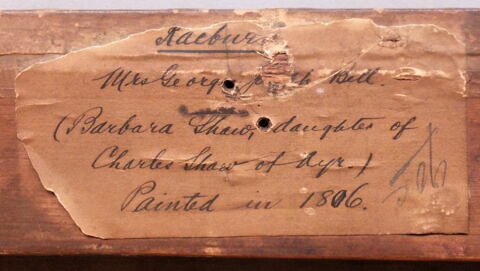 Raeburn
Mrs George Bell.
(Barbara Shaw, daughter of
Charles Shaw of Ayr.)
Painted in 1806.